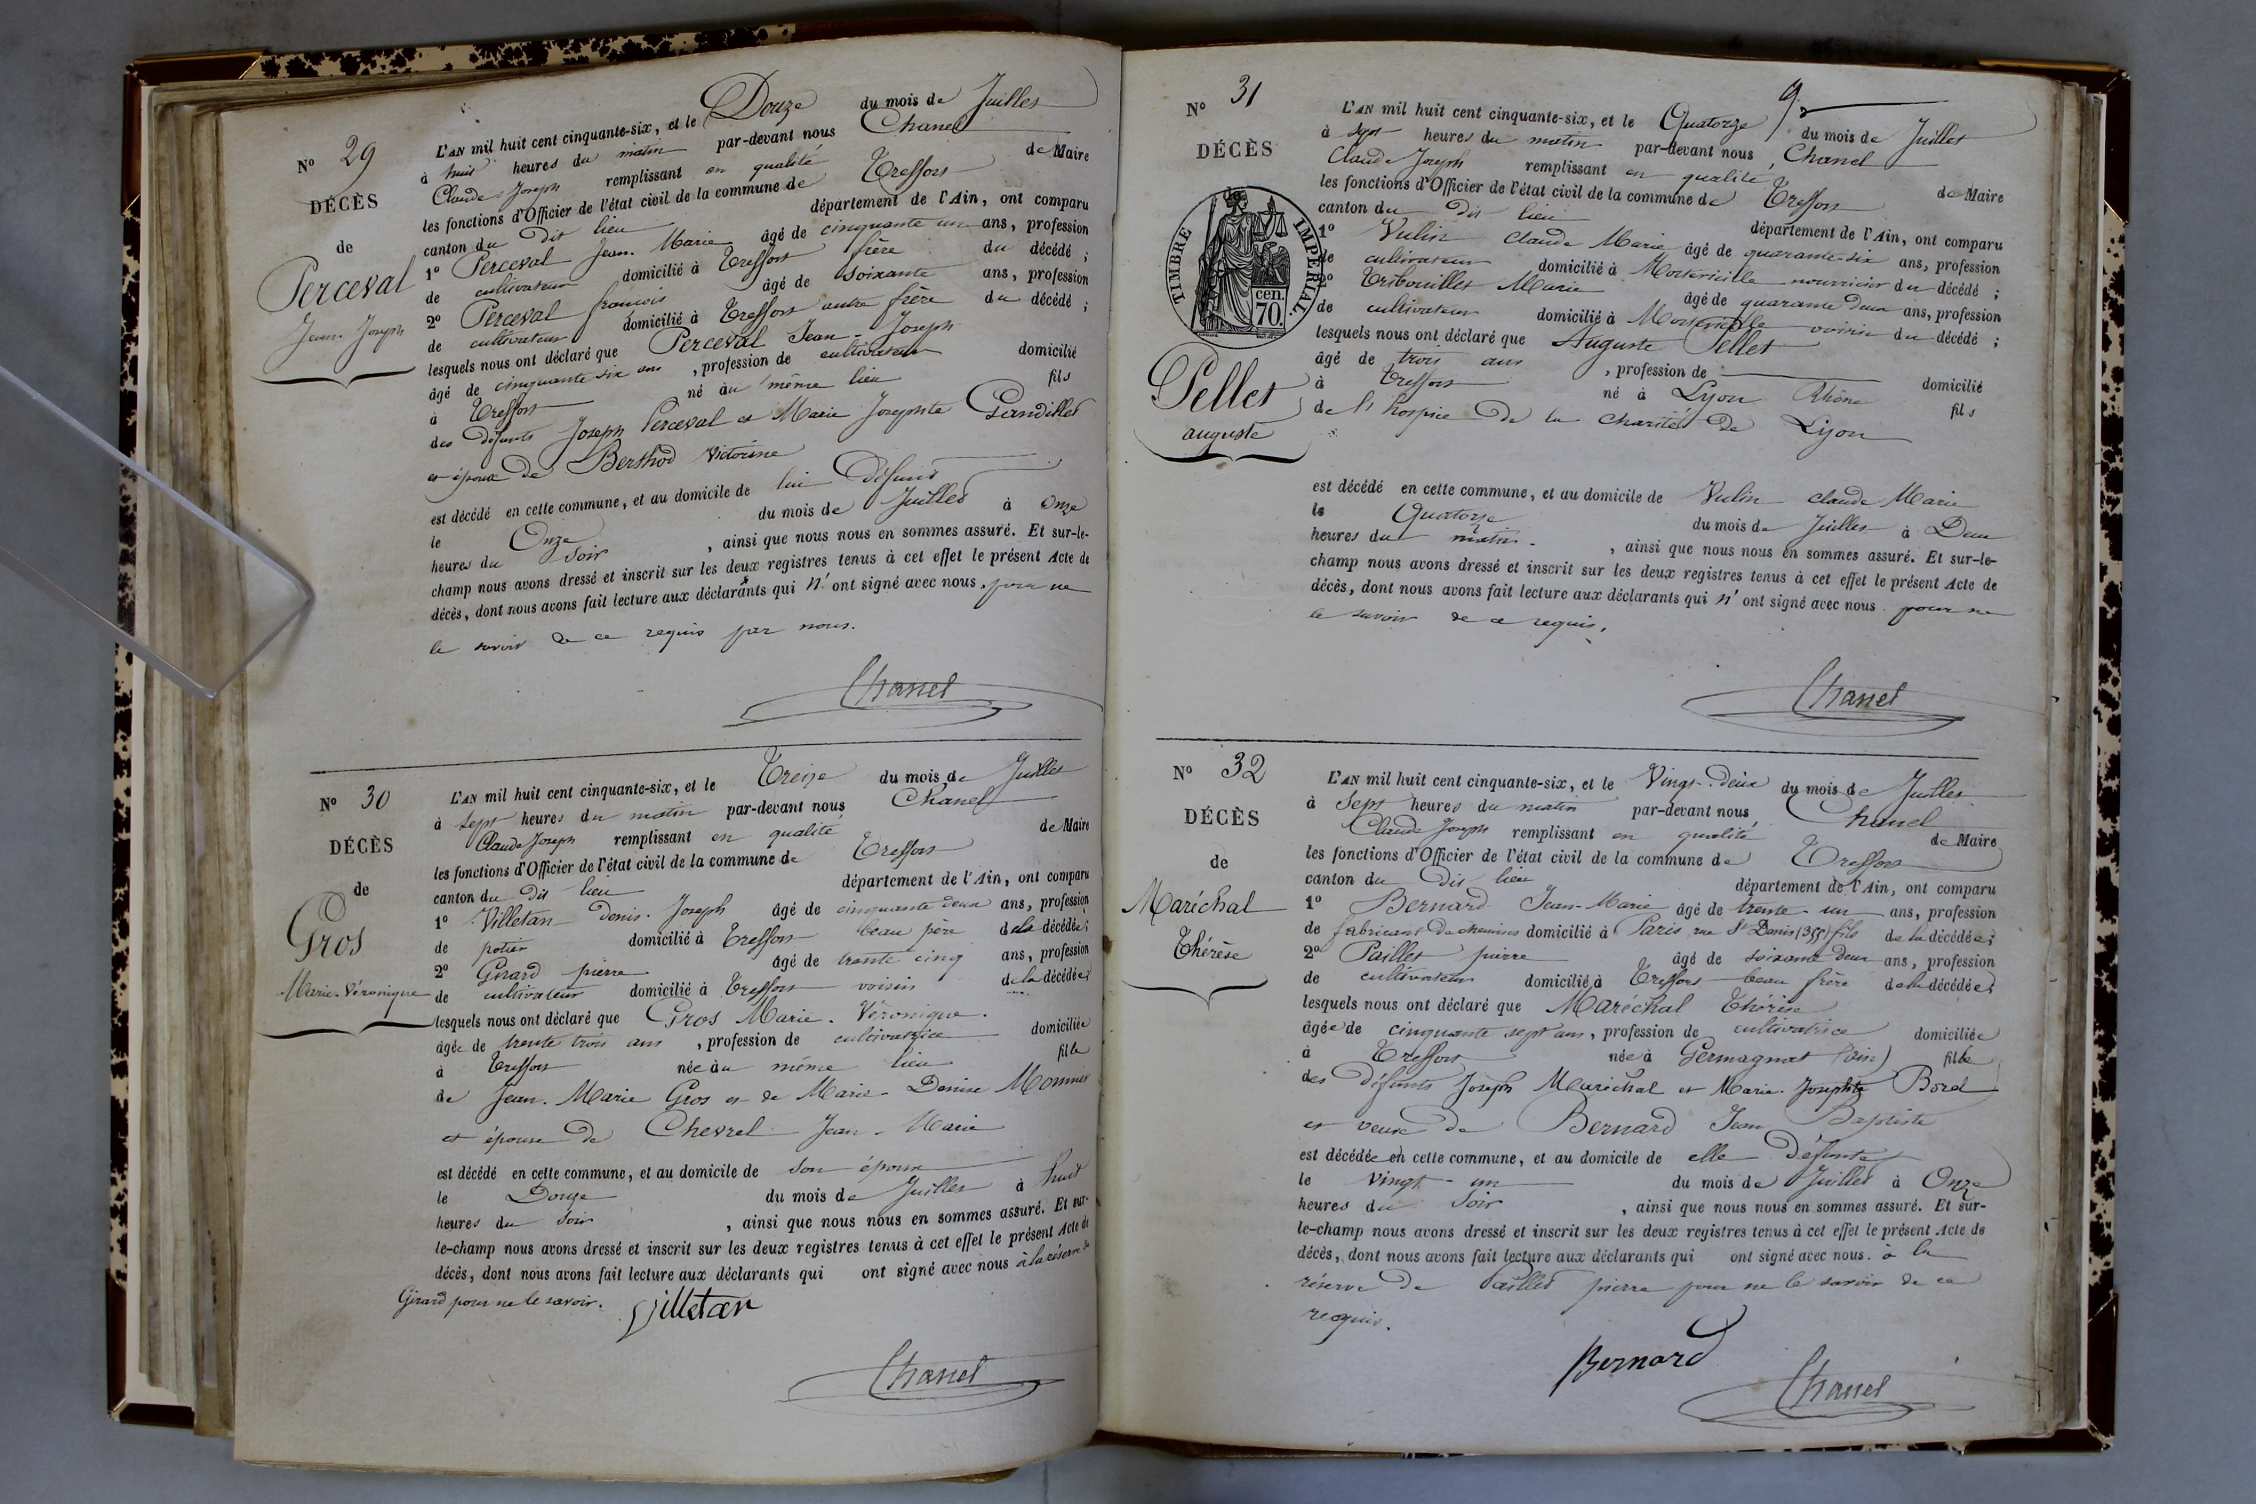 N° 29
DÉCÈS
de
Perceval
Jean-Joseph
L'AN mil huit cent cinquante-six, et le Douze du mois de Juillet
à huit heures du matin par-devant nous Chanel
Claude Joseph remplissant en qualité de Maire
les fonctions d'Officier de l'état civil de la commune de Treffort
canton du dit lieu département de l'Ain, ont comparu
1° Perceval Jean-Marie âgé de cinquante un ans, profession
de cultivateur domicilié à Treffort frère du décédé ;
2° Perceval françois âgé de soixante ans, profession
de cultivateur domicilié à Treffort autre frère du décédé ;
lesquels nous ont déclaré que Perceval Jean-Joseph
âgé de cinquante six ans , profession de cultivateur domicilié
à Treffort né au même lieu fils
des défunts Joseph Perceval et Marie Josephte Gandillet
et époux de Berthod Victorine
est décédé en cette commune, et au domicile de lui défunt
le Onze du mois de Juillet à Onze
heures du soir , ainsi que nous nous en sommes assuré. Et sur-le-
champ nous avons dressé et inscrit sur les deux registres tenus à cet effet le présent Acte de
décès, dont nous avons fait lecture aux déclarants qui n'ont signé avec nous, pour ne
le savoir de ce requis par nous.
Chanel
N° 30
DÉCÈS
de
Gros
Marie-Véronique
L'AN mil huit cent cinquante-six, et le Treize du mois de Juillet
à sept heures du matin par-devant nous Chanel
Claude Joseph remplissant en qualité de Maire
les fonctions d'Officier de l'état civil de la commune de Treffort
canton du dit lieu département de l'Ain, ont comparu
1° Villetan Denis-Joseph âgé de cinquante deux ans, profession
de potier domicilié à Treffort beau père de la décédée ;
2° Girard pierre âgé de trente cinq ans, profession
de cultivateur domicilié à Treffort voisin de la décédée ;
lesquels nous ont déclaré que Gros Marie-Véronique.
âgée de trente trois ans , profession de cultivatrice domiciliée
à Treffort née au même lieu fille
de Jean-Marie Gros et de Marie-Denise Monnier
et épouse de Chevrel Jean-Marie
est décédé en cette commune, et au domicile de son époux
le Douze du mois de Juillet à huit
heures du soir , ainsi que nous nous en sommes assuré. Et sur-
le-champ nous avons dressé et inscrit sur les deux registres tenus à cet effet le présent Acte de
décès, dont nous avons fait lecture aux déclarants qui ont signé avec nous à la réserve de
Girard pour ne le savoir. Villetan
Chanel
9
N° 31
DÉCÈS
TIMBRE IMPÉRIAL.
cen.
70.
Pellet
auguste
L'AN mil huit cent cinquante-six, et le Quatorze du mois de Juillet
à sept heures du matin par-devant nous, Chanel
Claude Joseph remplissant en qualité de Maire
les fonctions d'Officier de l'état civil de la commune de Treffort
canton du dit lieu département de l'Ain, ont comparu
1° Vulin Claude Marie âgé de quarante-six ans, profession
de cultivateur domicilié à nourricier du décédé ;
2° Tribouillet Marie âgé de quarante deux ans, profession
de cultivateur domicilié à voisin du décédé ;
lesquels nous ont déclaré que Auguste Pellet
âgé de trois ans , profession de domicilié
à Treffort né à Lyon Rhône fils
de l'hospice de la charité de Lyon
est décédé en cette commune, et au domicile de Vulin claude Marie
le Quatorze du mois de Juillet à Deux
heures du matin. , ainsi que nous nous en sommes assuré. Et sur-le-
champ nous avons dressé et inscrit sur les deux registres tenus à cet effet le présent Acte de
décès, dont nous avons fait lecture aux déclarants qui n'ont signé avec nous pour ne
le savoir de ce requis.
Chanel
N° 32
DÉCÈS
de
Maréchal
Thérèse
L'AN mil huit cent cinquante-six, et le Vingt-deux du mois de Juillet
à Sept heures du matin par-devant nous Chanel
Claude Joseph remplissant en qualité de Maire
les fonctions d'Officier de l'état civil de la commune de Treffort
canton du dit lieu département de l'Ain, ont comparu
1° Bernard Jean-Marie âgé de trente-un ans, profession
de fabricant de chemises domicilié à Paris rue St Denis (355) fils de la décédée ;
2° Paillet pierre âgé de soixante deux ans, profession
de cultivateur domicilié à Treffort beau frère de la décédée ;
lesquels nous ont déclaré que Maréchal Thérèse
âgée de cinquante sept ans, profession de cultivatrice domiciliée
à Treffort née à Germagnat (ain) fille
des défunts Joseph Maréchal et Marie-Josephte Borel
et veuve de Bernard Jean Baptiste
est décédée en cette commune, et au domicile de elle défunte
le vingt-un du mois de Juillet à Onze
heures du soir , ainsi que nous nous en sommes assuré. Et sur-
le-champ nous avons dressé et inscrit sur les deux registres tenus à cet effet le présent Acte de
décès, dont nous avons fait lecture aux déclarants qui ont signé avec nous. à la
réserve de Paillet pierre pour ne le savoir de ce
requis.
Bernard
Chanel